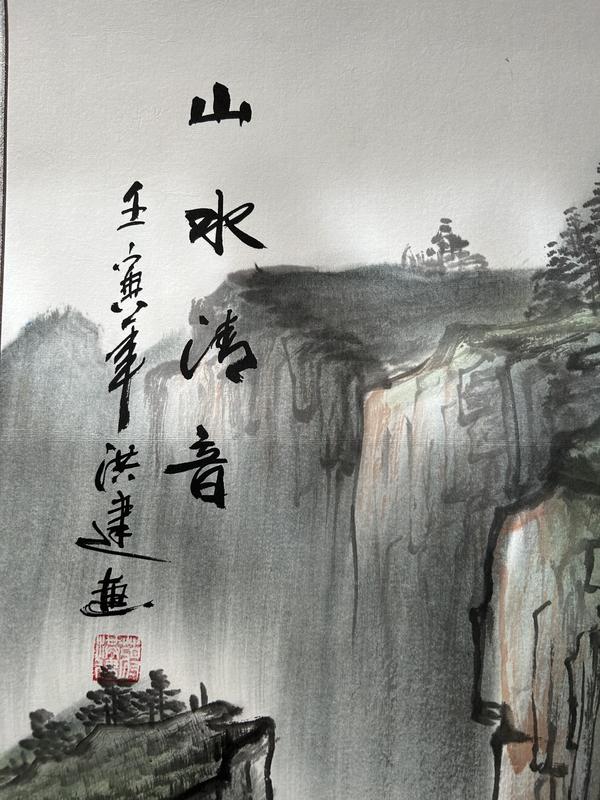 山水清音
壬寅年洪建画